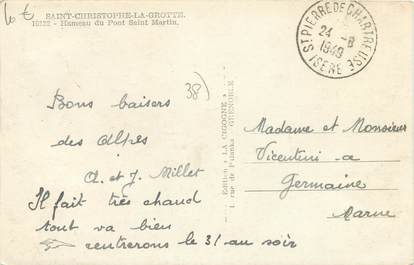 10 €
SAINT-CHRISTOPHE-LA-GROTTE.
- Hameau du Pont Saint Martin.
38)
Bons baisers
des Alpes
A. et J. Millet
Il fait très chaud
tout va bien
rentrerons le 31 au soir
Edition « LA CIGOGNE »
1, rue de Palanka - GRENOBLE
ST PIERRE DE CHARTREUSE
24 -8
1949
ISERE
Madame et Monsieur
Vicentini - a
Germaine
Marne